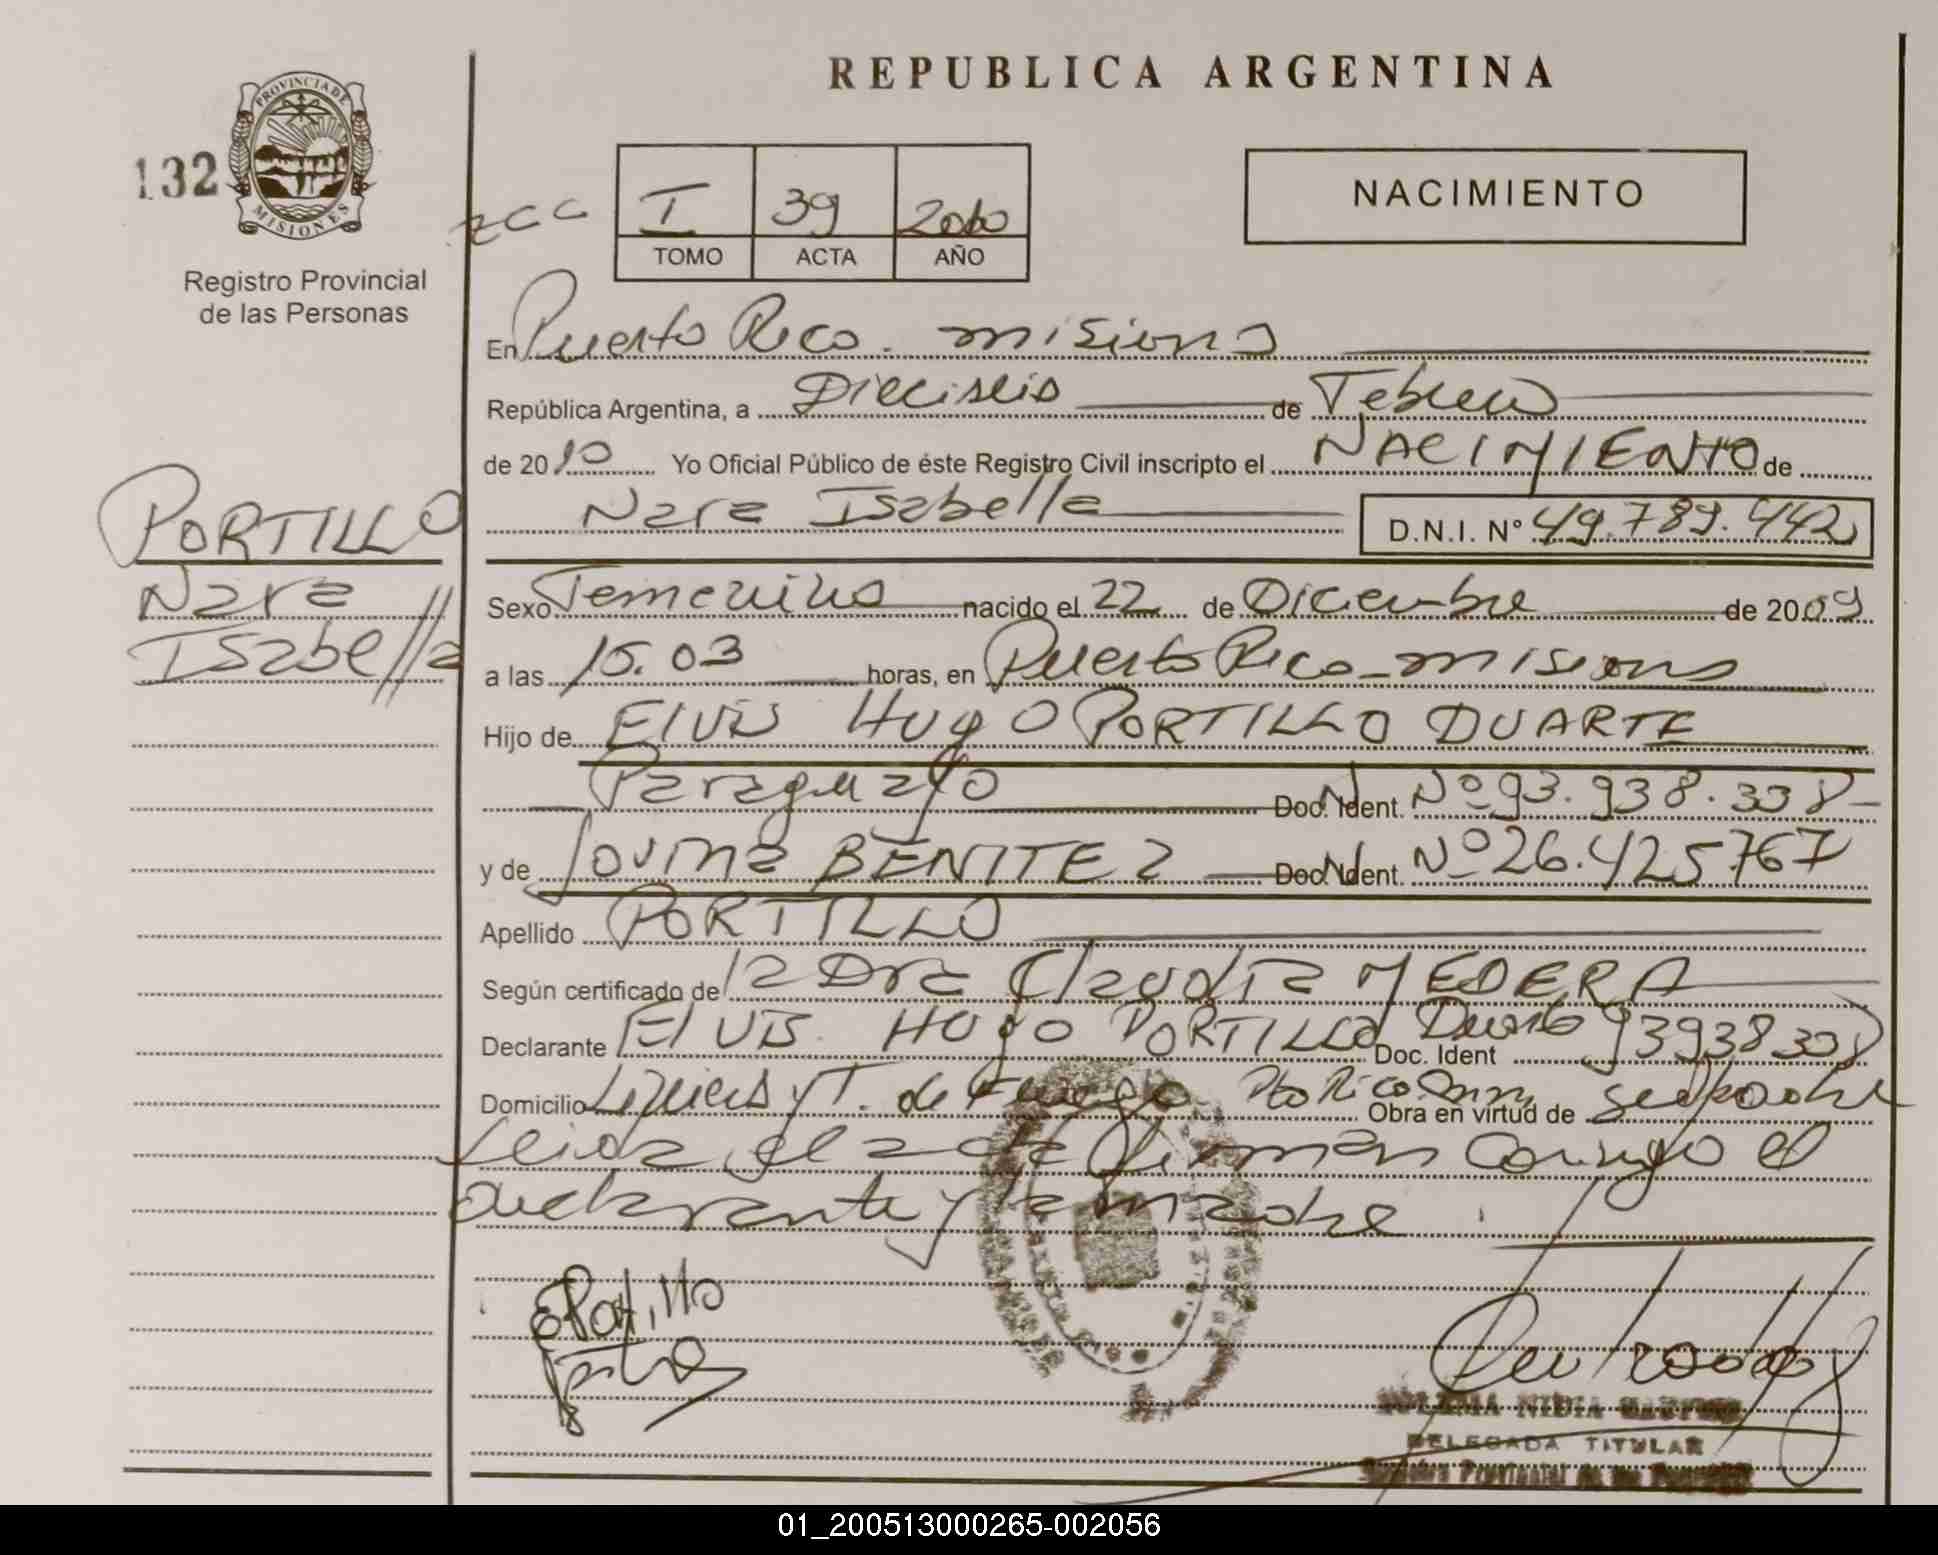 REPUBLICA ARGENTINA
PROVINCIA DE
MISIONES
132
Registro Provincial
de las Personas
I 39 2010
TOMO ACTA AÑO
NACIMIENTO
En Puerto Rico. misiones
República Argentina, a Dieciseis de Febrero
de 2010 Yo Oficial Público de éste Registro Civil inscripto el NACIMIENTO de
Nara Isabella D.N.I. Nº 49.789.442
PORTILLO
Nara
Isabella
Sexo Femenino nacido el 22 de Diciembre de 2009
a las 15.03 horas, en Puerto Rico - misiones
Hijo de Elvis Hugo PORTILLO DUARTE
Paraguayo Doc. Ident. Nº 93.938.338
y de Jovina BENITEZ Doc. Ident. Nº 26.425767
Apellido PORTILLO
Según certificado de la Dra Claudia MEDERA
Declarante Elvis Hugo PORTILLO Duarte Doc. Ident 93938338
Domicilio y T. de Fuego Pto Rico Obra en virtud de
Leida el acta firman conmigo el
declarante y la madre.
EPortillo
NIDIA
DELEGADA TITULAR
Registro Provincial de las Personas
01_200513000265-002056